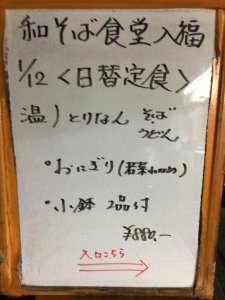 和そば食堂入福
1/12 <日替定食>
温) とりなん そば
うどん
・おにぎり(若菜)
・小鉢 2品付
¥880.-
入口こちら